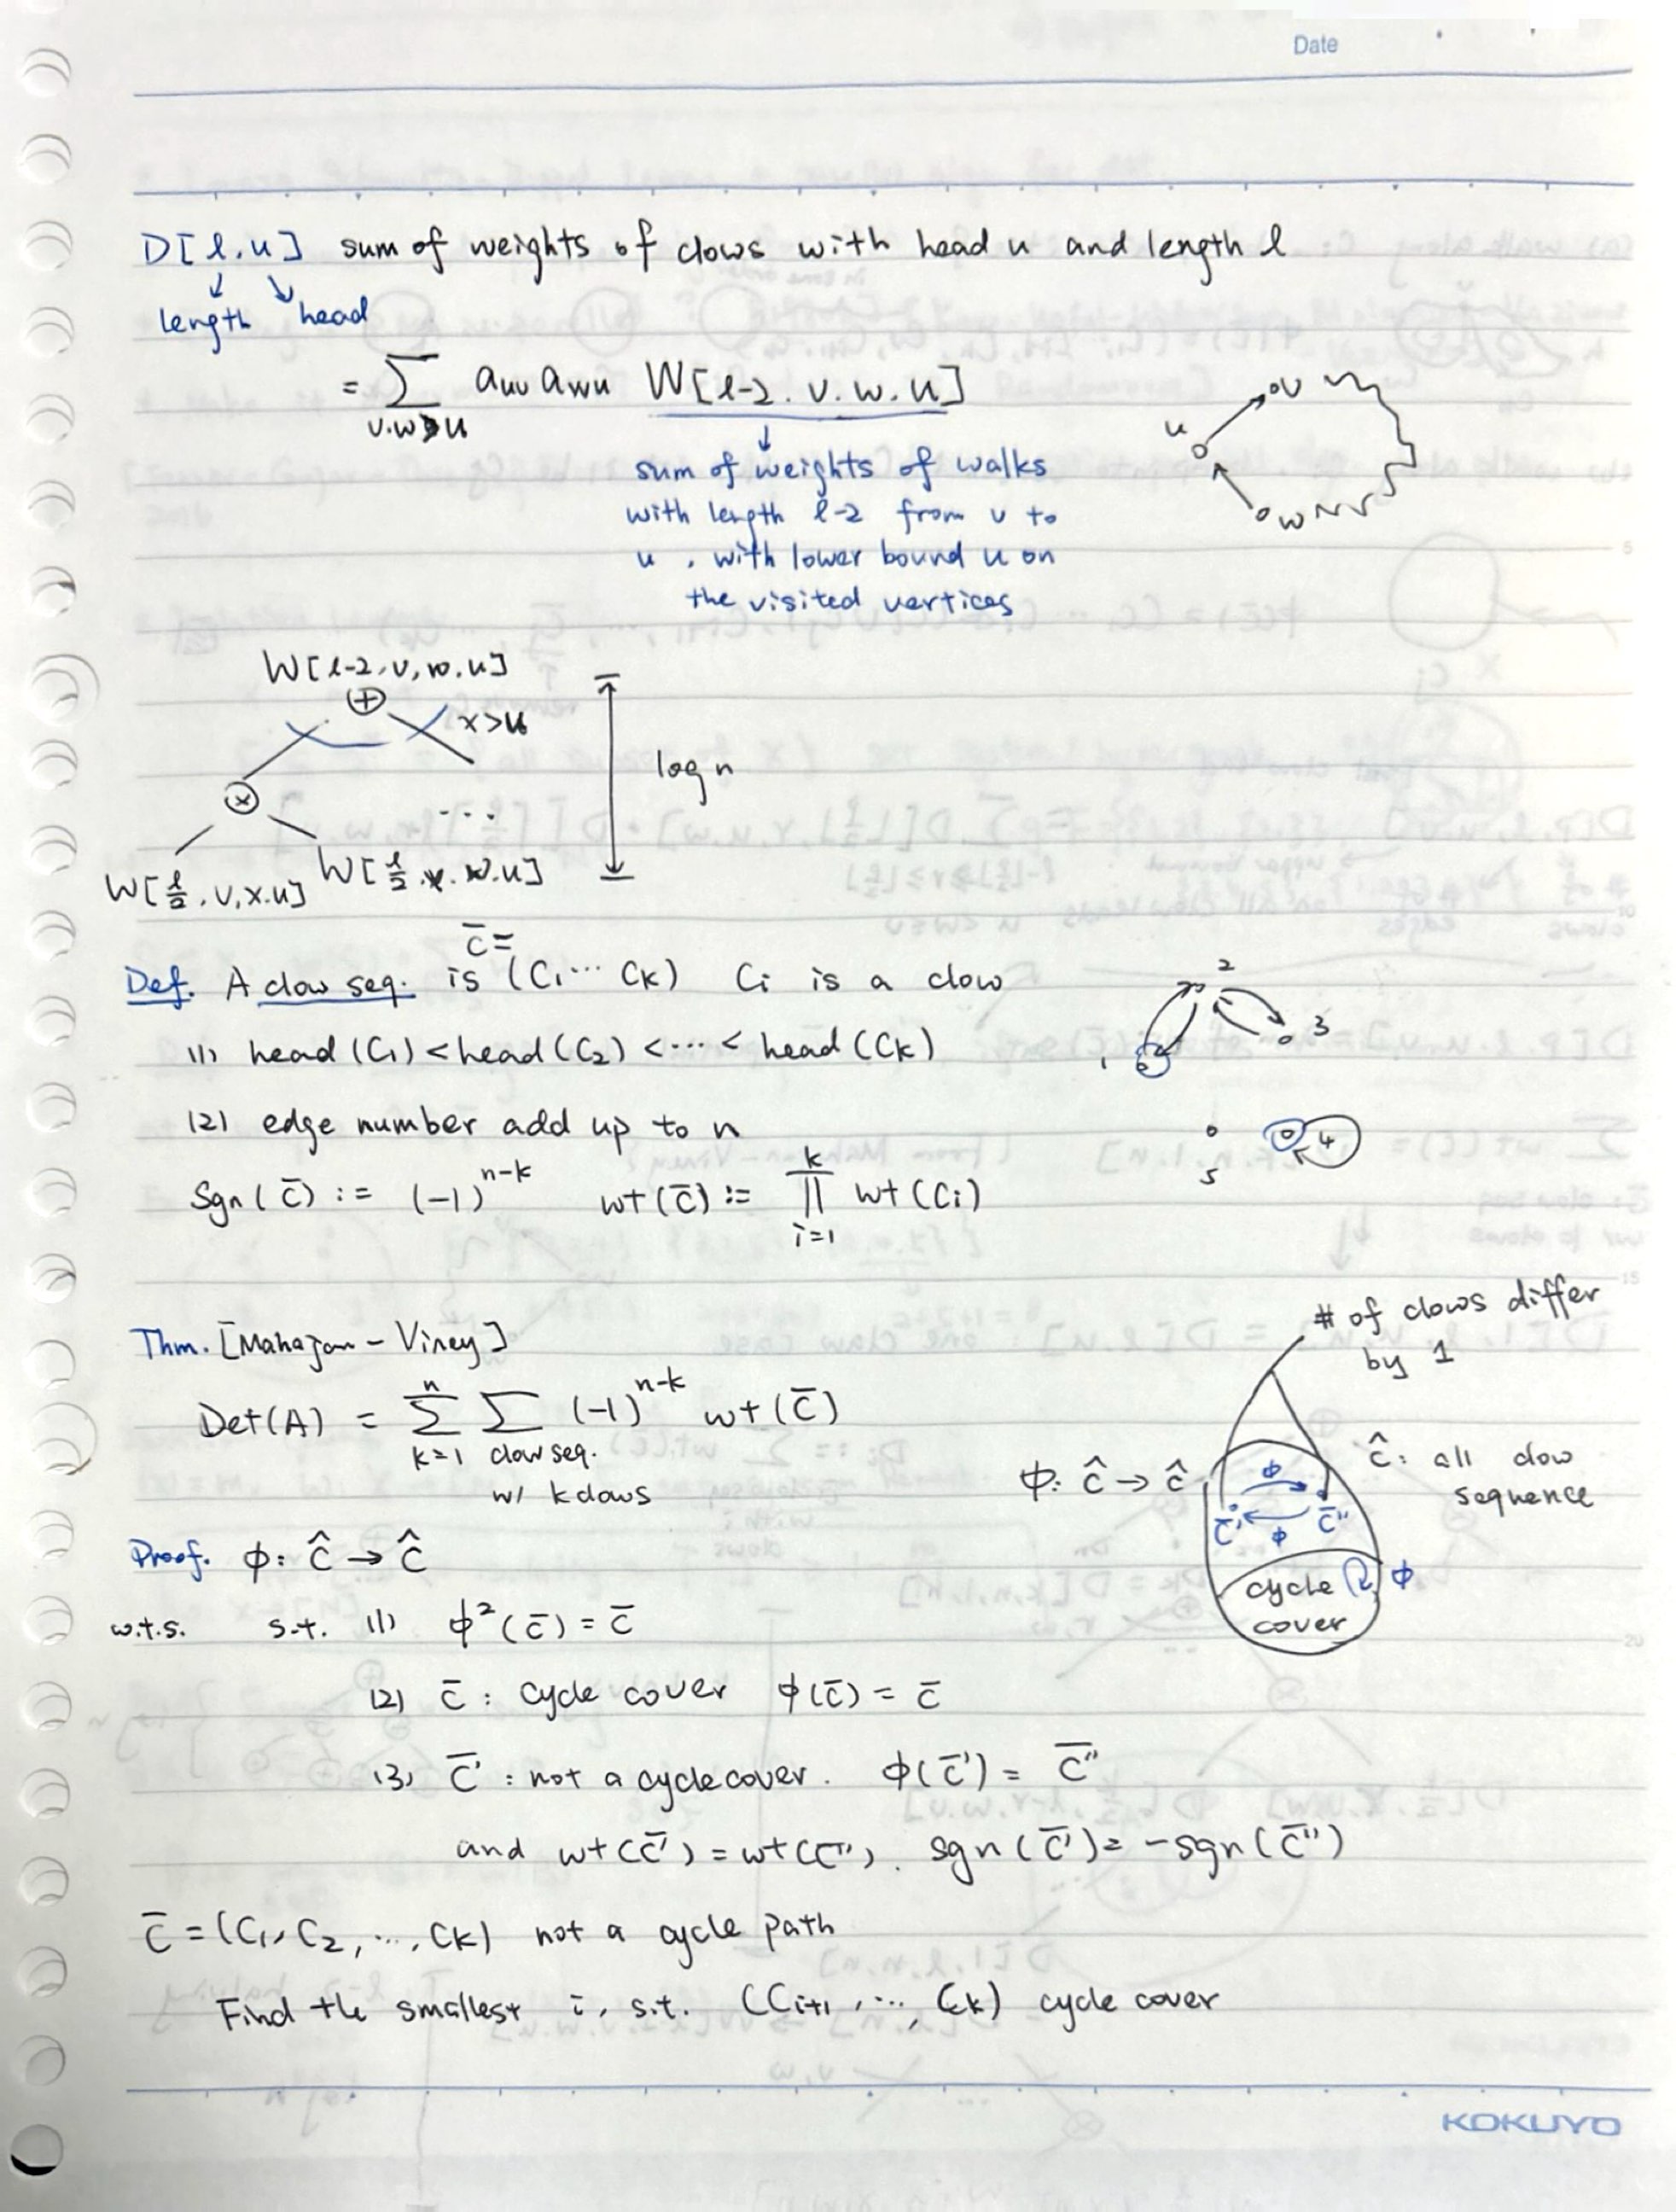 Date
D[l.u] sum of weights of clows with head u and length l
length head
= ∑ a_{uv} a_{wu} W[l-2. v. w. u]
v.w>u
sum of weights of walks
with length l-2 from v to
u, with lower bound u on
the visited vertices
u
v
w
W[l-2, v, w. u]
⊕
x>u
log n
⊗
...
W[l/2. v, x. u] W[l/2. x. w. u]
Def. A clow seq. is c̄ = (C1 ... Ck) Ci is a clow
(1) head (C1) < head (C2) < ... < head (Ck)
(2) edge number add up to n
Sgn(c̄) := (-1)^{n-k} wt(c̄) := ∏_{i=1}^{k} wt(Ci)
2
3
1
4
5
Thm. [Mahajan - Viney]
Det(A) = ∑_{k=1}^{n} ∑ (-1)^{n-k} wt(c̄)
clow seq.
w/ k clows
# of clows differ
by 1
ϕ: ĉ → ĉ
ĉ: all clow
sequence
ϕ
c̄' c̄''
ϕ
cycle
cover
ϕ
Proof. ϕ: ĉ → ĉ
w.t.s. s.t. (1) ϕ²(c̄) = c̄
(2) c̄ : cycle cover ϕ(c̄) = c̄
(3) c̄' : not a cycle cover. ϕ(c̄') = c̄''
and wt(c̄') = wt(c̄''). sgn(c̄') = -sgn(c̄'')
c̄ = (C1, C2, ..., Ck) not a cycle path
Find the smallest i, s.t. (Ci+1, ..., Ck) cycle cover
5
10
15
20
KOKUYO